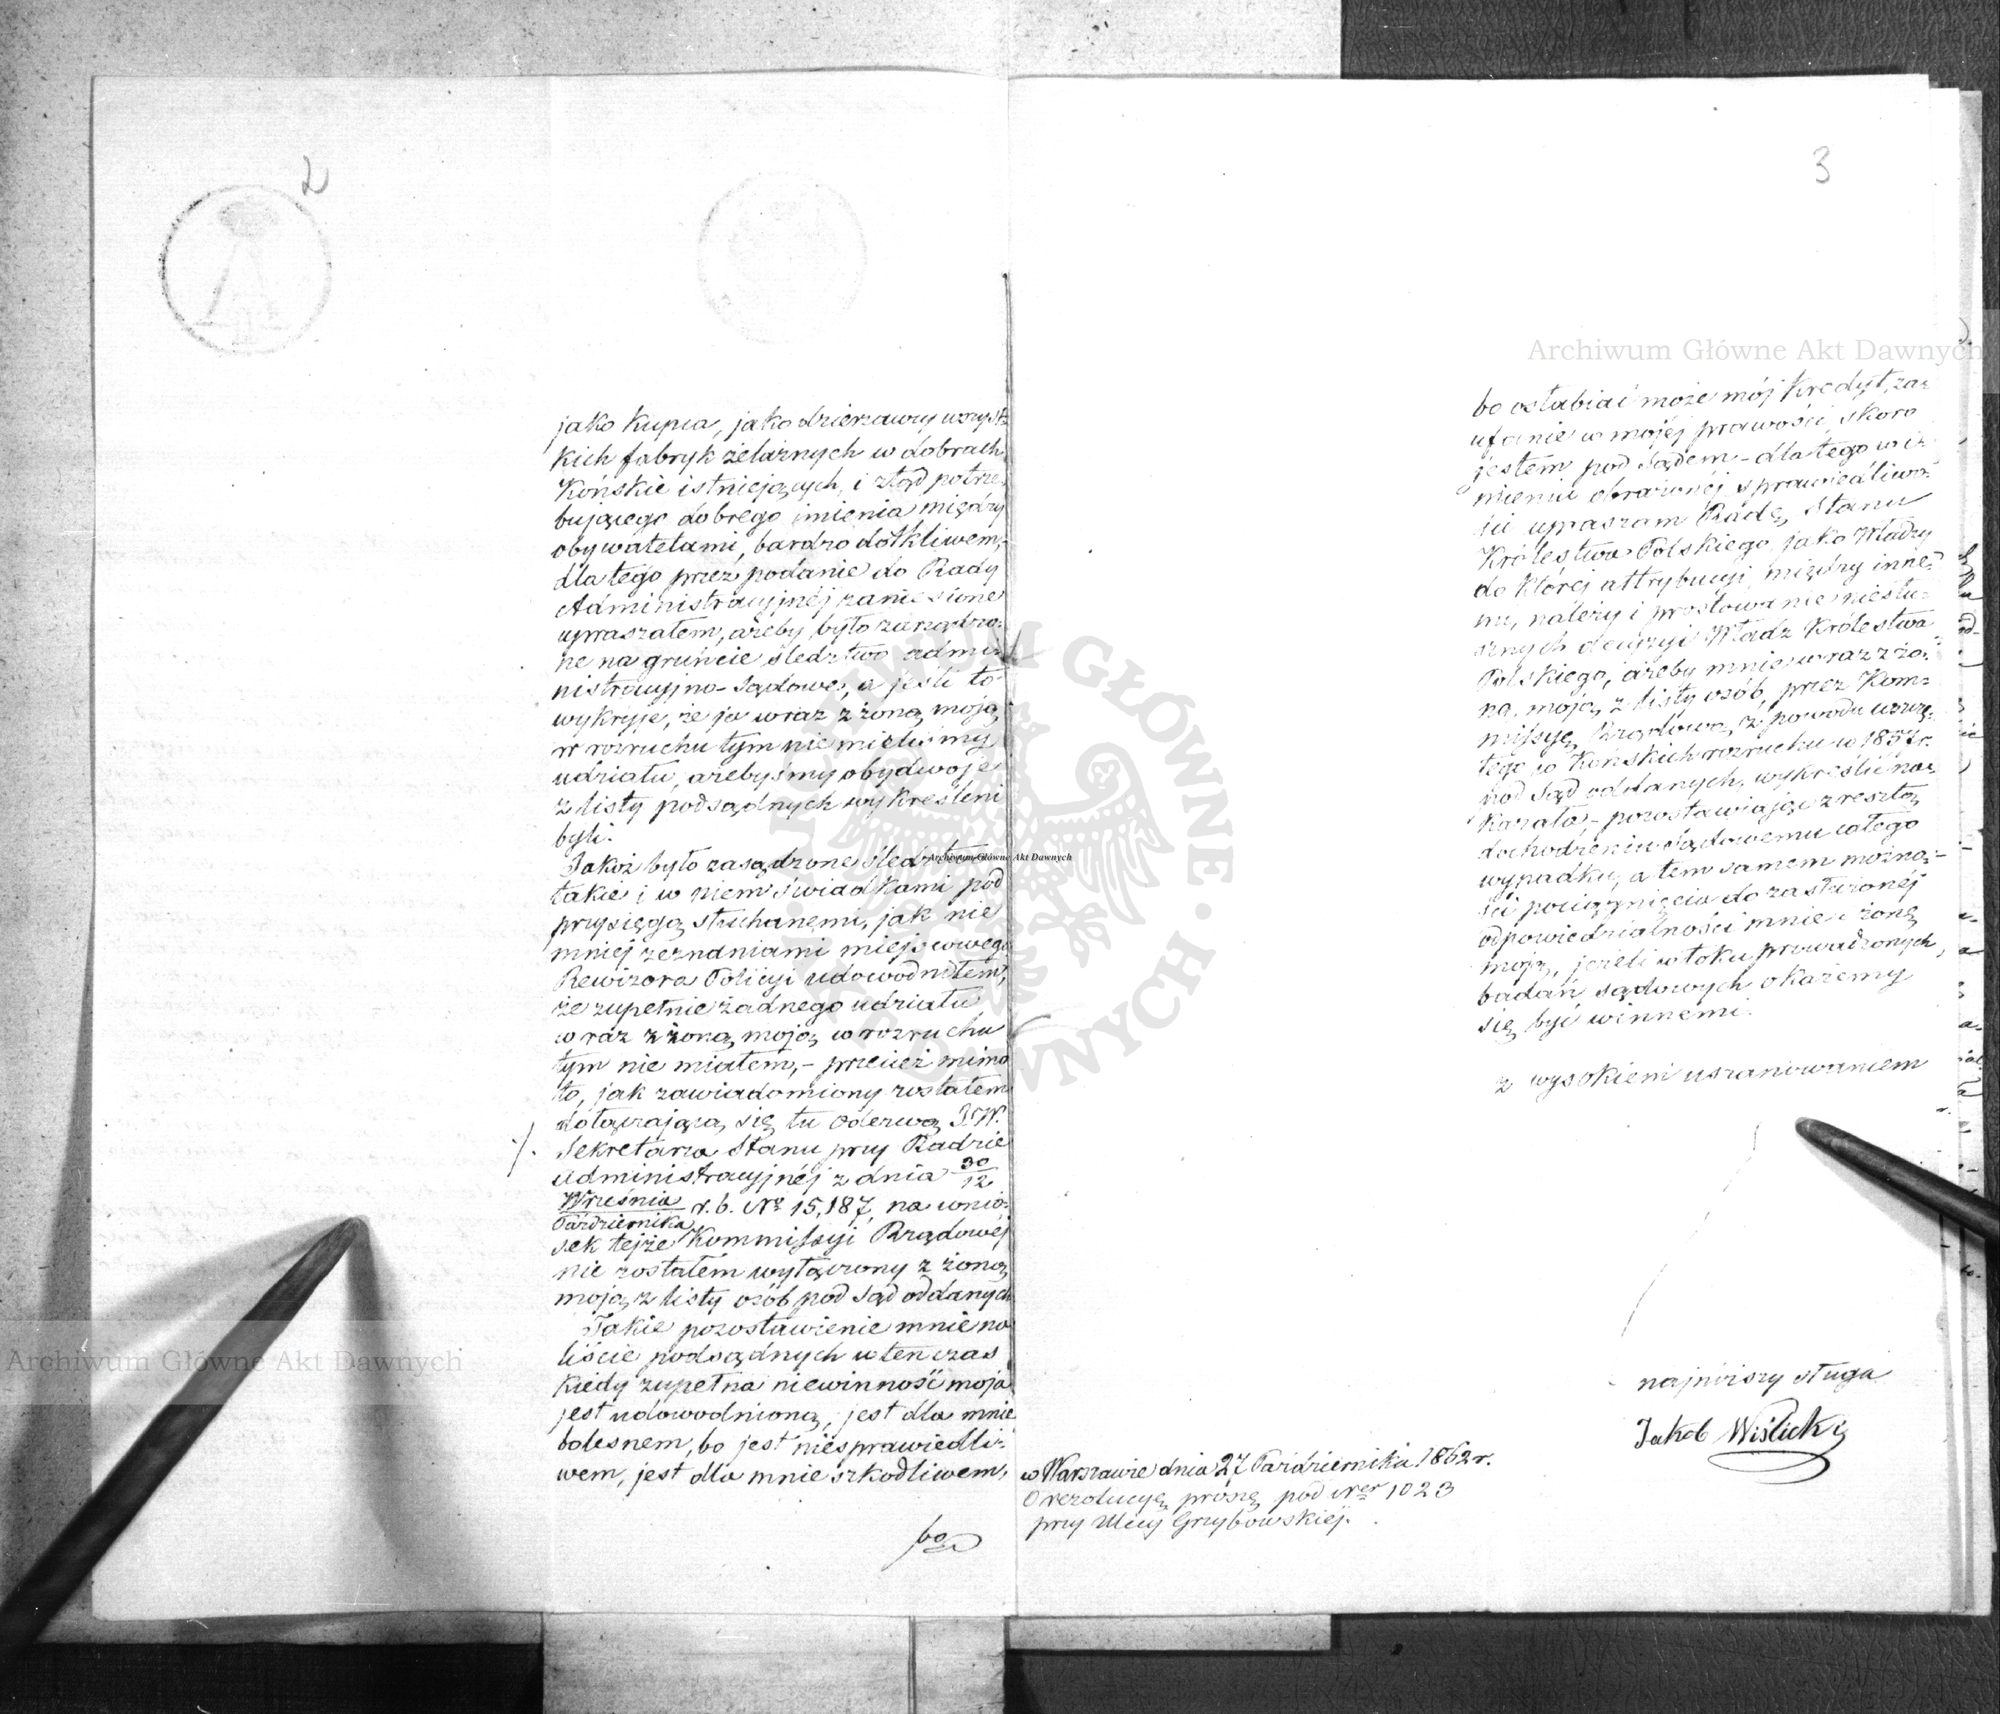 2
jako kupca, jako dzierzawcy wszyst-
kich fabryk żelaznych w dobrach
Końskie istniejących, i ztąd potrze-
bującego dobrego imienia między
obywatelami, bardzo dotkliwem,-
dla tego przez podanie do Rady
Administracyjnéj zaniesione
upraszałem, ażeby było zarządzo-
ne na gruncie śledztwo admi-
nistracyjno-sądowe, a jeśli to
wykryje, że ja wraz z żoną moją
w rozruchu tym nie mieliśmy
udziału, ażebyśmy obydwoje
z listy podsądnych wykreśleni
byli.
Jakoż było zasądzone śledztwo
takie i w niem świadkami pod
przysięgą słuchanemi, jak nie
mniej zeznaniami miejscowego
Rewizora Policyi udowodniłem,
że zupełnie żadnego udziału
wraz z żoną moją w rozruchu
tym nie miałem,- przecież mimo
to, jak zawiadomiony zostałem
dołączającą się tu Odezwą J.W.
./.
Sekretarza Stanu przy Radzie
Administracyjnéj z dnia 30/12
Września/Października r.b. No 15,187, na wnio-
sek tejże Kommissyi Rządowéj
nie zostałem wyłączony z żoną
moją z listy osób pod Sąd oddanych
Takie pozostawienie mnie na
liście podsądnych w ten czas
kiedy zupełna niewinność moja
jest udowodnioną, jest dla mnie
bolesnem, bo jest niesprawiedli-
wem, jest dla mnie szkodliwem,
bo
3
bo osłabiać może mój Kredyt, za-
ufanie w mojéj prawości, skoro
jestem pod Sądem - dla tego w i-
mieniu obrażonéj sprawiedliwo-
ści upraszam Radę Stanu
Królestwa Polskiego, jako Władzy
do której attrybucyi, między inne-
mi, należy i prostowanie niesłu-
sznych decyzyi Władz Królestwa
Polskiego, ażeby mnie wraz z żo-
ną moją z listy osób, przez Kom-
missyę Rządową, z powodu wszczę-
tego w Końskich rozruchu w 1857 r.
pod Sąd oddanych, wykreślić na-
kazała,- pozostawiając zresztą
dochodzeniu sądowemu całego
wypadku, a tem samem możno-
ści pociągnięcia do zasłużonéj
odpowiedzialności mnie i żonę
moją, jeżeli w toku prowadzonych
badań sądowych okażemy
się być winnemi.
z wysokiem uszanowaniem
najniższy sługa
Jakob Wiślicki
w Warszawie dnia 27 Października 1862 r.
O rezolucyą proszę pod Nrer 1023
przy Ulicy Grzybowskiéj.
Archiwum Główne Akt Dawnych
Archiwum Główne Akt Dawnych
Archiwum Główne Akt Dawnych
ARCHIWUM GŁÓWNE AKT DAWNYCH